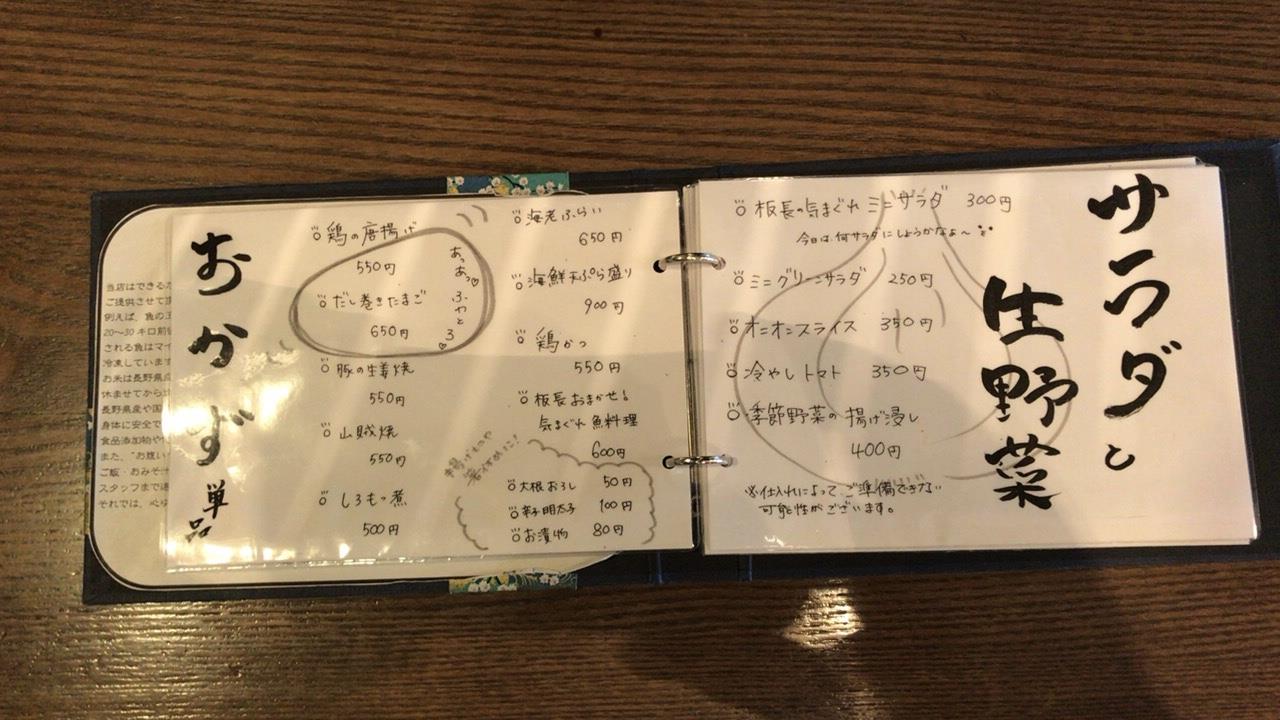 おかず 単品
鶏の唐揚げ
550円
だし巻きたまご
650円
あっあっ ふわとろ
豚の生姜焼
550円
山賊焼
550円
しろもつ煮
500円
海老ふらい
650円
海鮮天ぷら盛り
900円
鶏かつ
550円
板長おまかせ!
気まぐれ魚料理
600円
大根おろし 50円
辛子明太子 100円
お漬物 80円
サラダと
生野菜
板長の気まぐれミニサラダ 300円
今日は何サラダにしようかなぁ〜
ミニグリーンサラダ 250円
オニオンスライス 350円
冷やしトマト 350円
季節野菜の揚げ浸し
400円
※仕入れによってご準備できない
可能性がございます。
当店はできる
ご提供させて
例えば、魚の
20〜30キロ前
される魚はマイ
冷凍しています
お米は長野県産
休ませてから
長野県産や国
身体に安全で
食品添加物や
また、"お腹い
ご飯・おみそ
スタッフまで
それでは、心